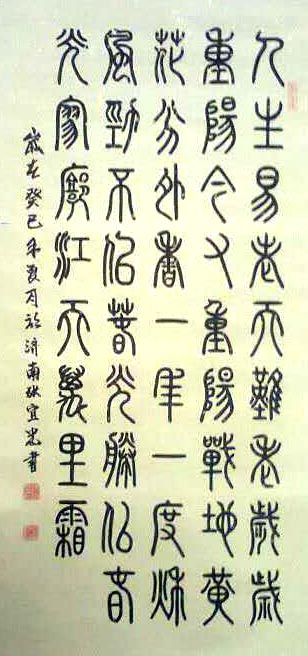 人生易老天難老歲歲
重陽今又重陽戰地黃
花分外香一年一度秋
風勁不似春光勝似春
光寥廓江天萬里霜
歲在癸巳年夏月於濟南宜忠書